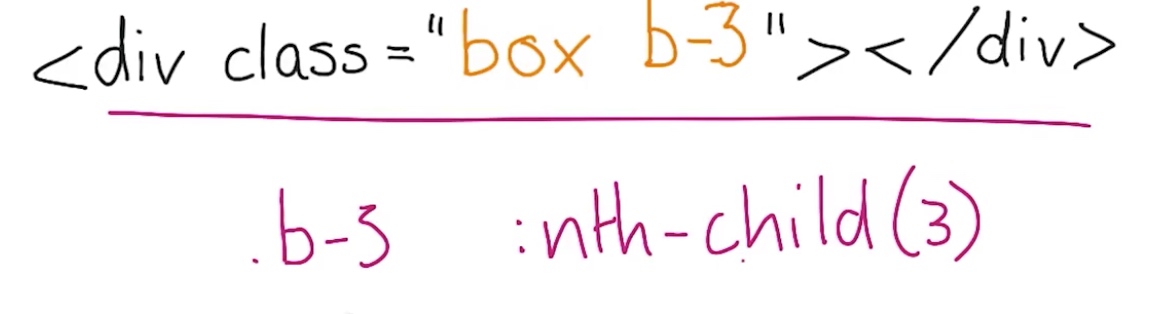 <div class="box b-3"></div>
.b-3 :nth-child(3)